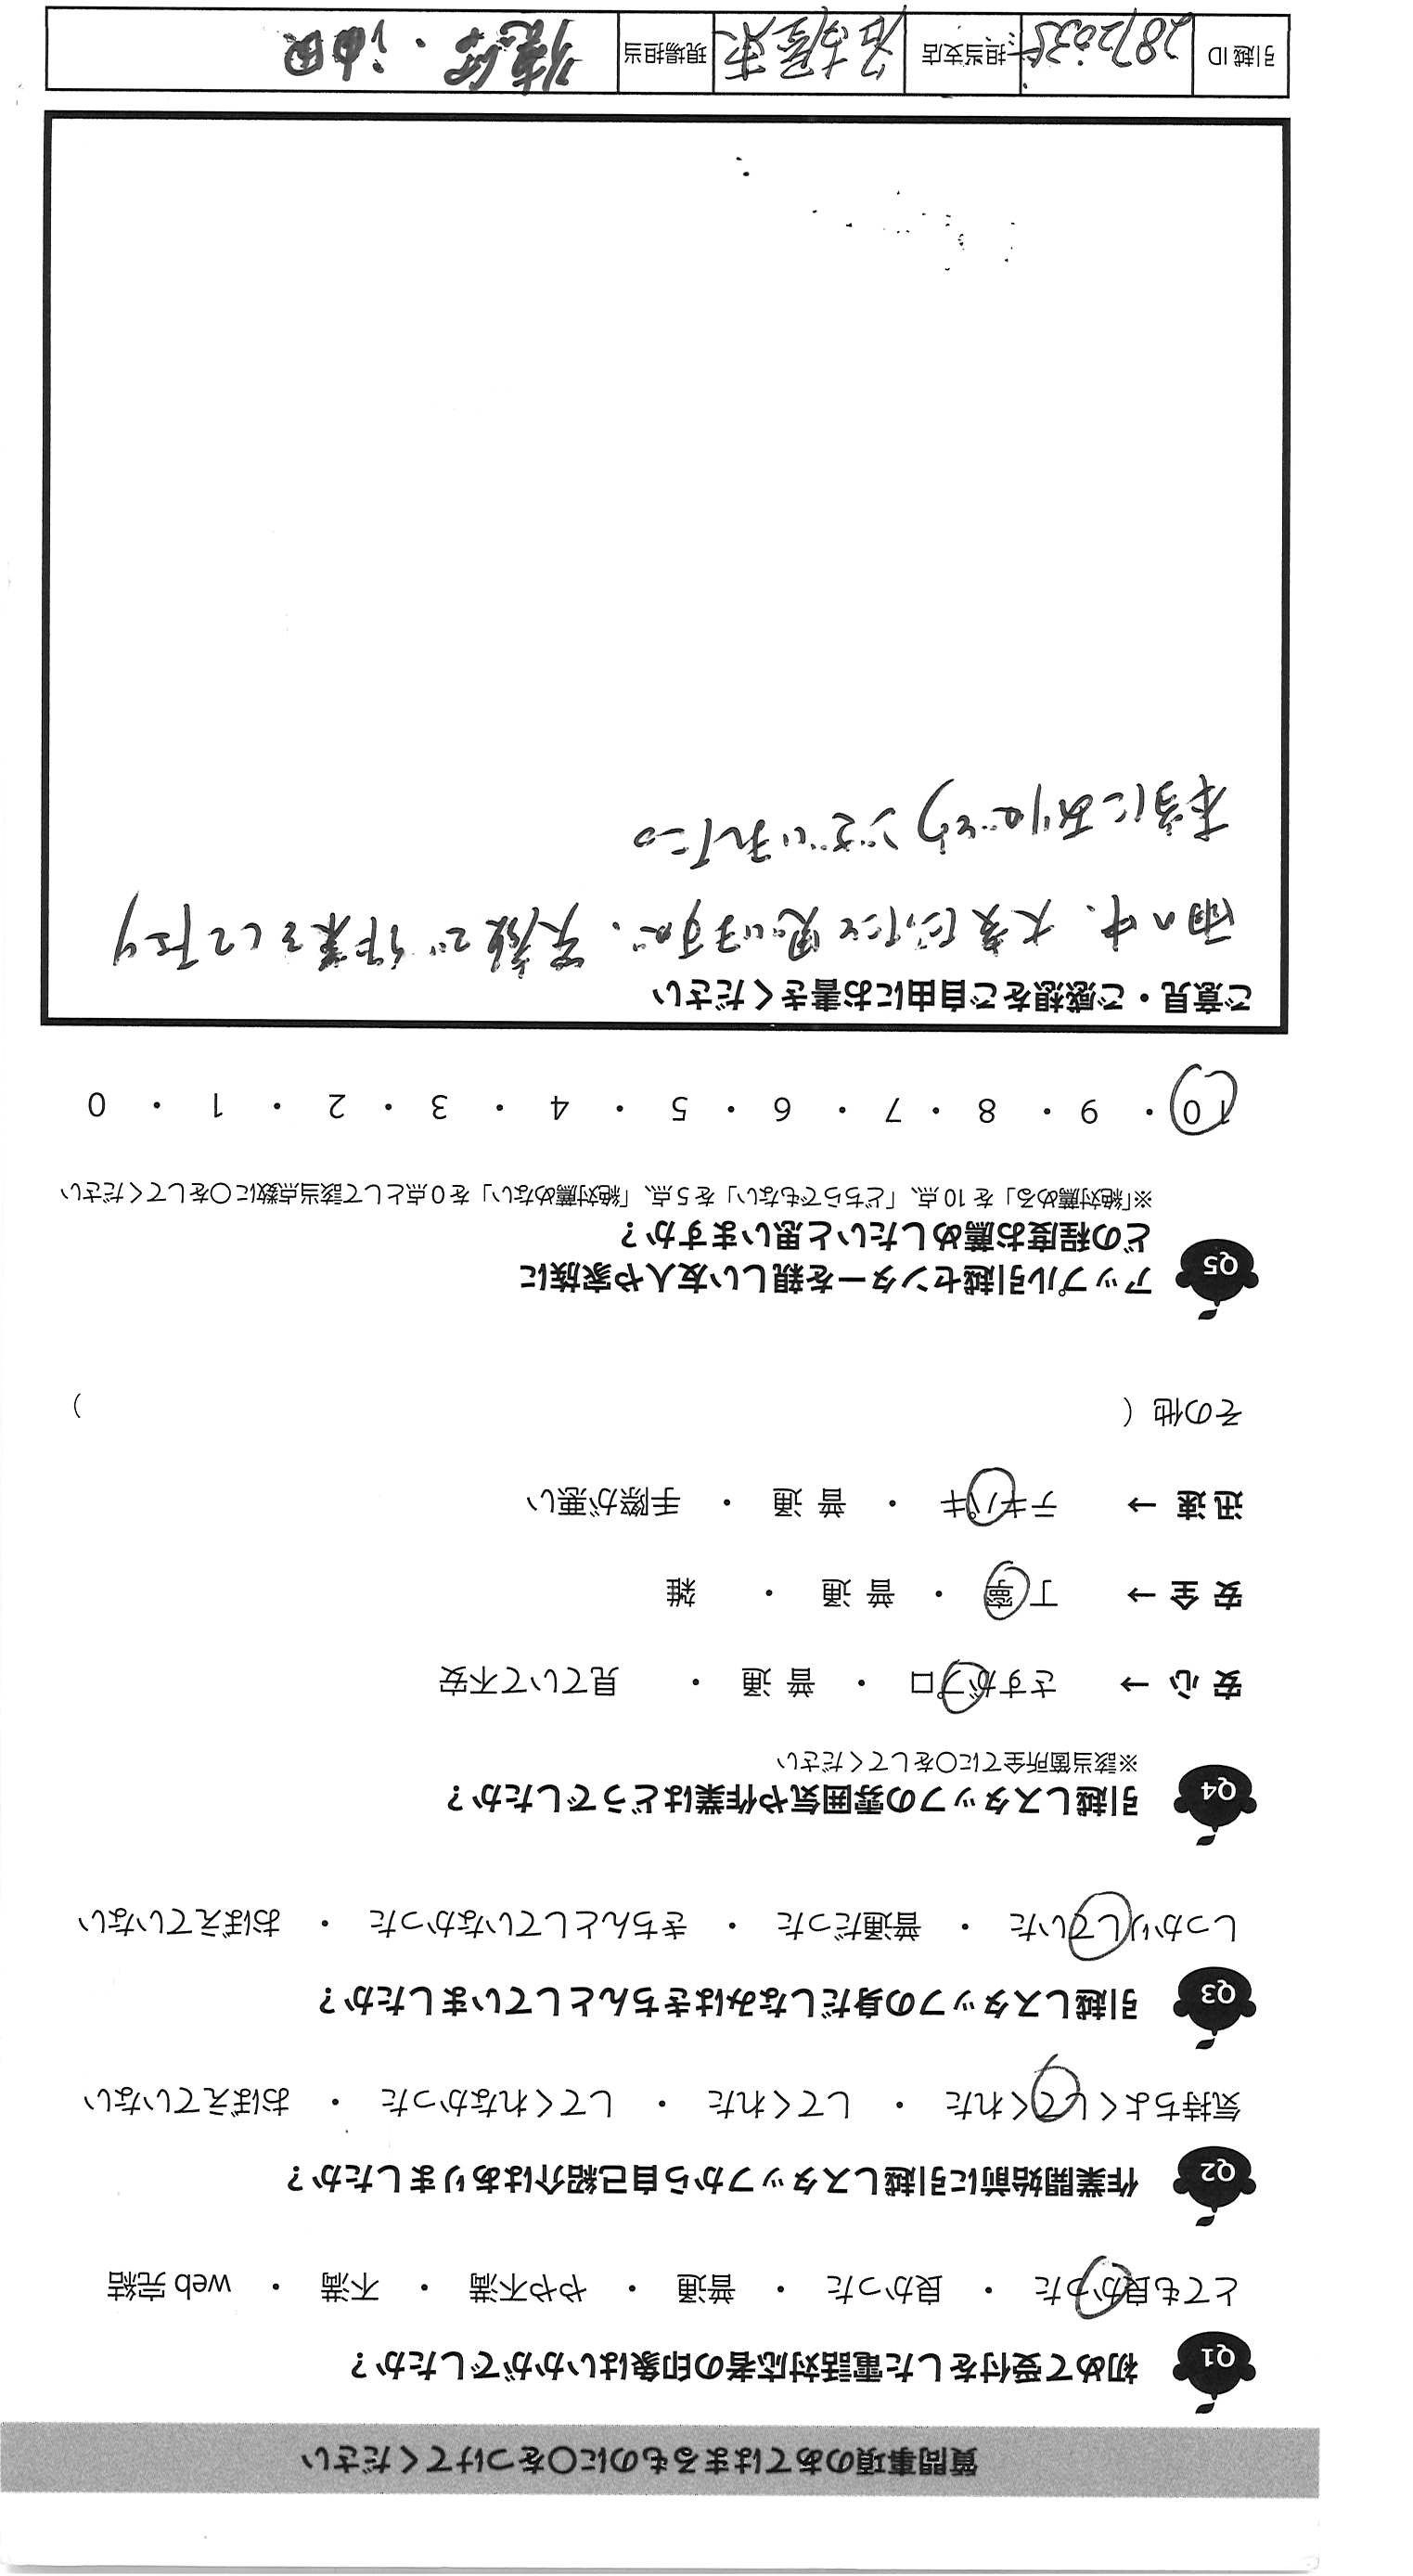 質問事項のあてはまるものに〇をつけてください
Q1 初めて受付をした電話対応者の印象はいかがでしたか？
とても良かった ・ 良かった ・ 普通 ・ やや不満 ・ 不満 ・ web 完結
Q2 作業開始前に引越しスタッフから自己紹介はありましたか？
気持ちよくしてくれた ・ してくれた ・ してくれなかった ・ おぼえていない
Q3 引越しスタッフの身だしなみはきちんとしていましたか？
しっかりしていた ・ 普通だった ・ きちんとしていなかった ・ おぼえていない
Q4 引越しスタッフの雰囲気や作業はどうでしたか？
※該当箇所全てに〇をしてください
安 心 → さすがプロ ・ 普 通 ・ 見ていて不安
安 全 → 丁 寧 ・ 普 通 ・ 雑
迅 速 → テキパキ ・ 普 通 ・ 手際が悪い
その他 （ ）
Q5 アップル引越センターを親しい友人や家族に
どの程度お薦めしたいと思いますか？
※「絶対薦める」を 10 点、「どちらでもない」を 5 点、「絶対薦めない」を 0 点として該当点数に〇をしてください
10 ・ 9 ・ 8 ・ 7 ・ 6 ・ 5 ・ 4 ・ 3 ・ 2 ・ 1 ・ 0
ご意見・ご感想をご自由にお書きください
雨の中、大変だったと思いますが、笑顔で作業をして下さり
本当にありがとうございました。
引越 ID 2872035 担当支店 名古屋東 現場担当 油田